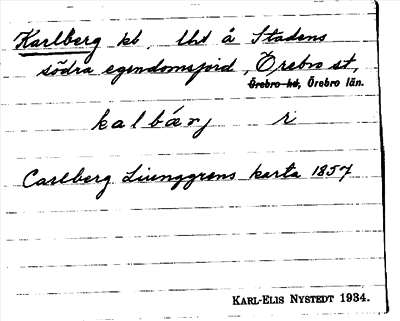 Karlberg kb. lht å Stadens
södra egendomsjord, Örebro st,
Örebro hd, Örebro län.
kalbärj r
Carlberg Liunggrens karta 1857
KARL-ELIS NYSTEDT 1934.